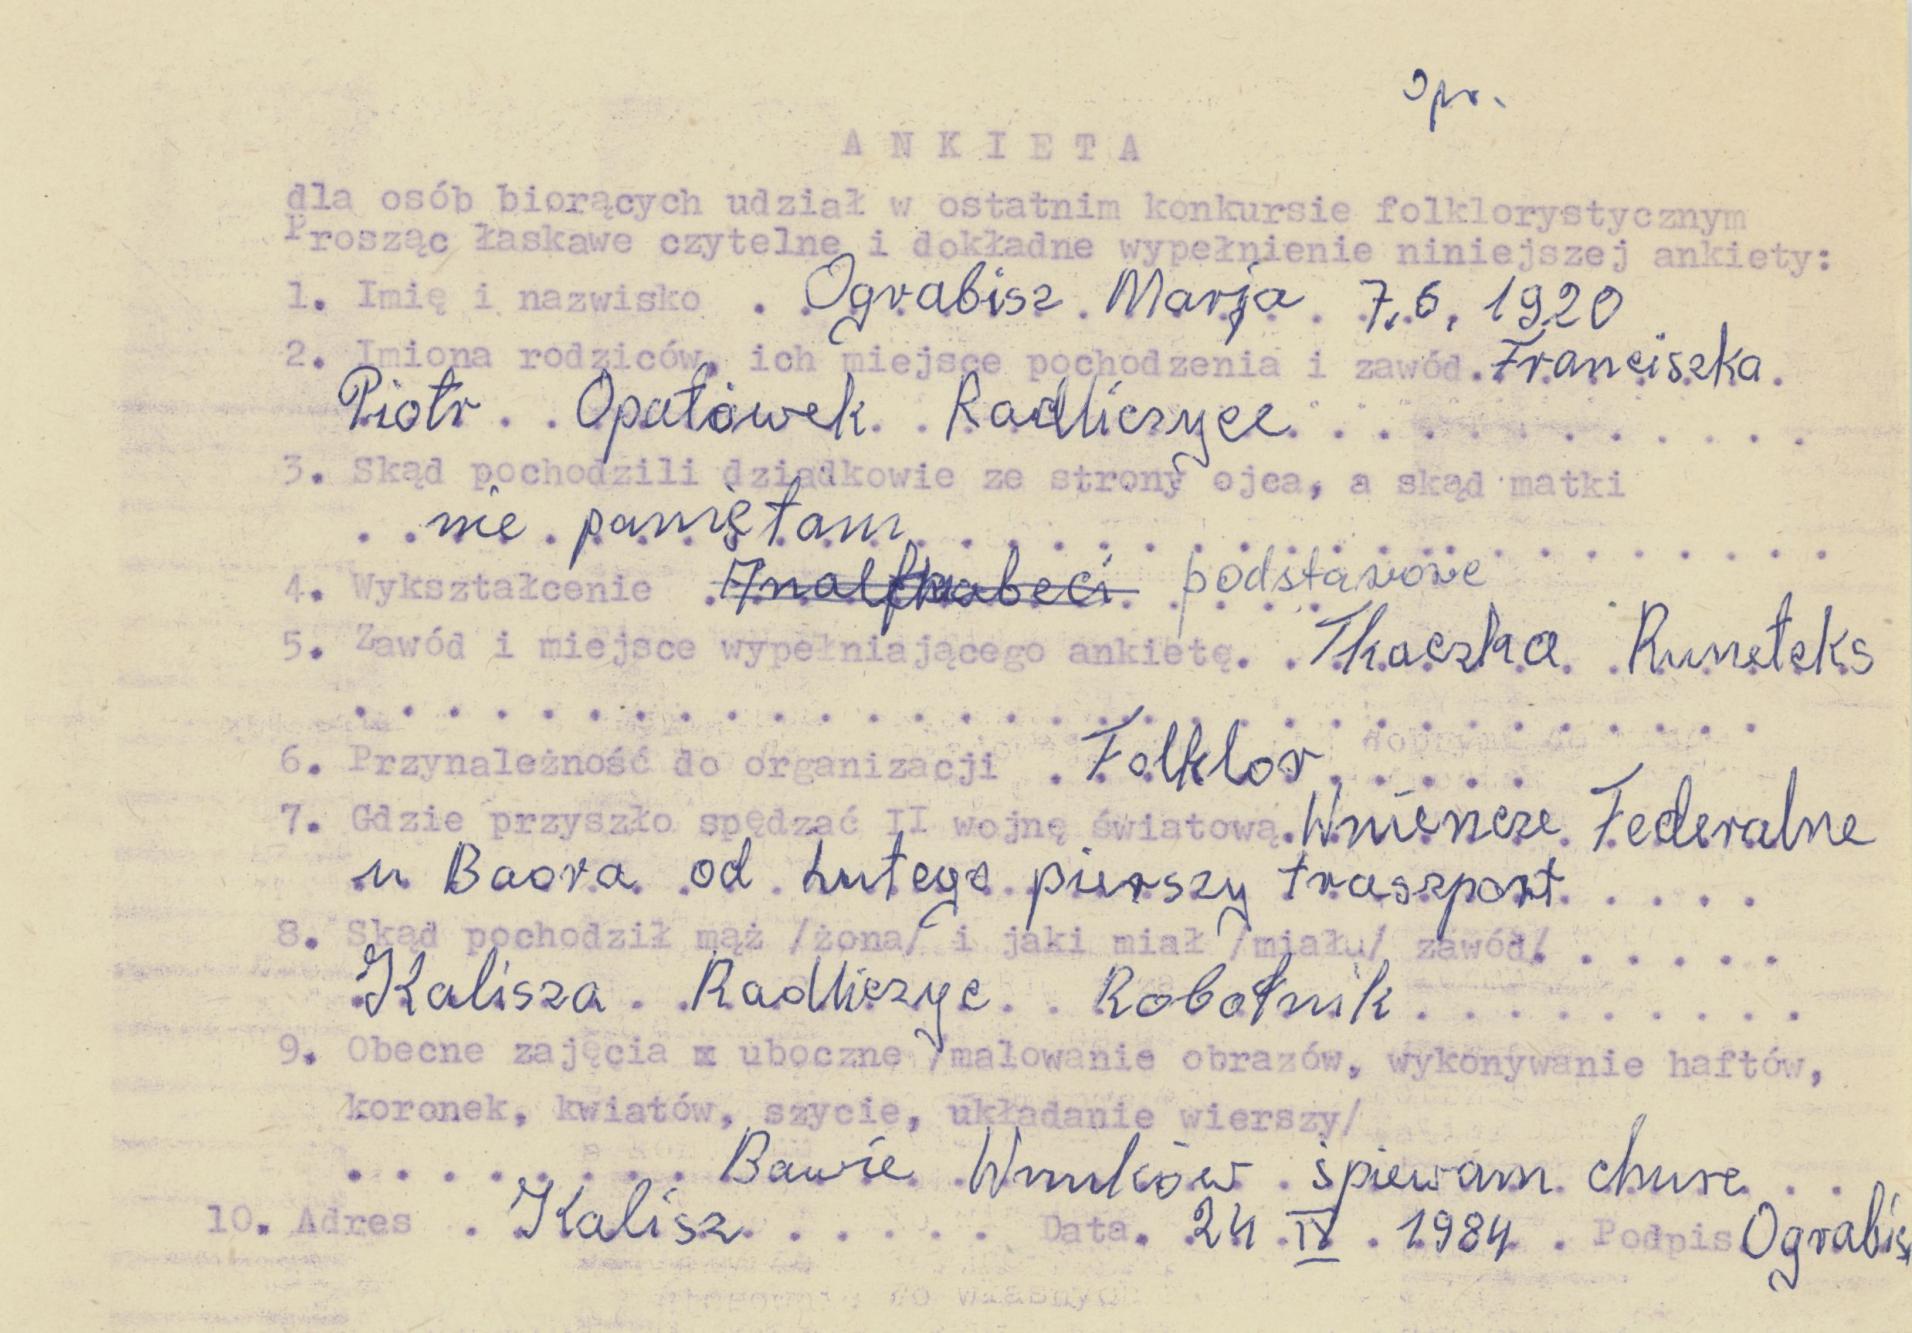 opr.
A N K I E T A
dla osób biorących udział w ostatnim konkursie folklorystycznym
Prosząc łaskawe czytelne i dokładne wypełnienie niniejszej ankiety:
1. Imię i nazwisko . Ograbisz Marja 7.6. 1920
2. Imiona rodziców, ich miejsce pochodzenia i zawód. Franciszka
Piotr Opatówek Radliczyce
3. Skąd pochodzili dziadkowie ze strony ojca, a skąd matki
nie pamiętam
4. Wykształcenie podstawowe
5. Zawód i miejsce wypełniającego ankietę. Tkaczka Runoteks
6. Przynależność do organizacji . Folklor
7. Gdzie przyszło spędzać II wojnę światową. Wniencze Federalne
u Baora od Lutego pierszy traszport
8. Skąd pochodził mąż /żona/ i jaki miał /miału/ zawód/.
Kalisza Radliczyc Robotnik
9. Obecne zajęcia x uboczne /malowanie obrazów, wykonywanie haftów,
koronek, kwiatów, szycie, układanie wierszy/
Bawie Wnuków śpiewam chure
10. Adres . Kalisz Data. 24 IV 1984 . Podpis Ograbis